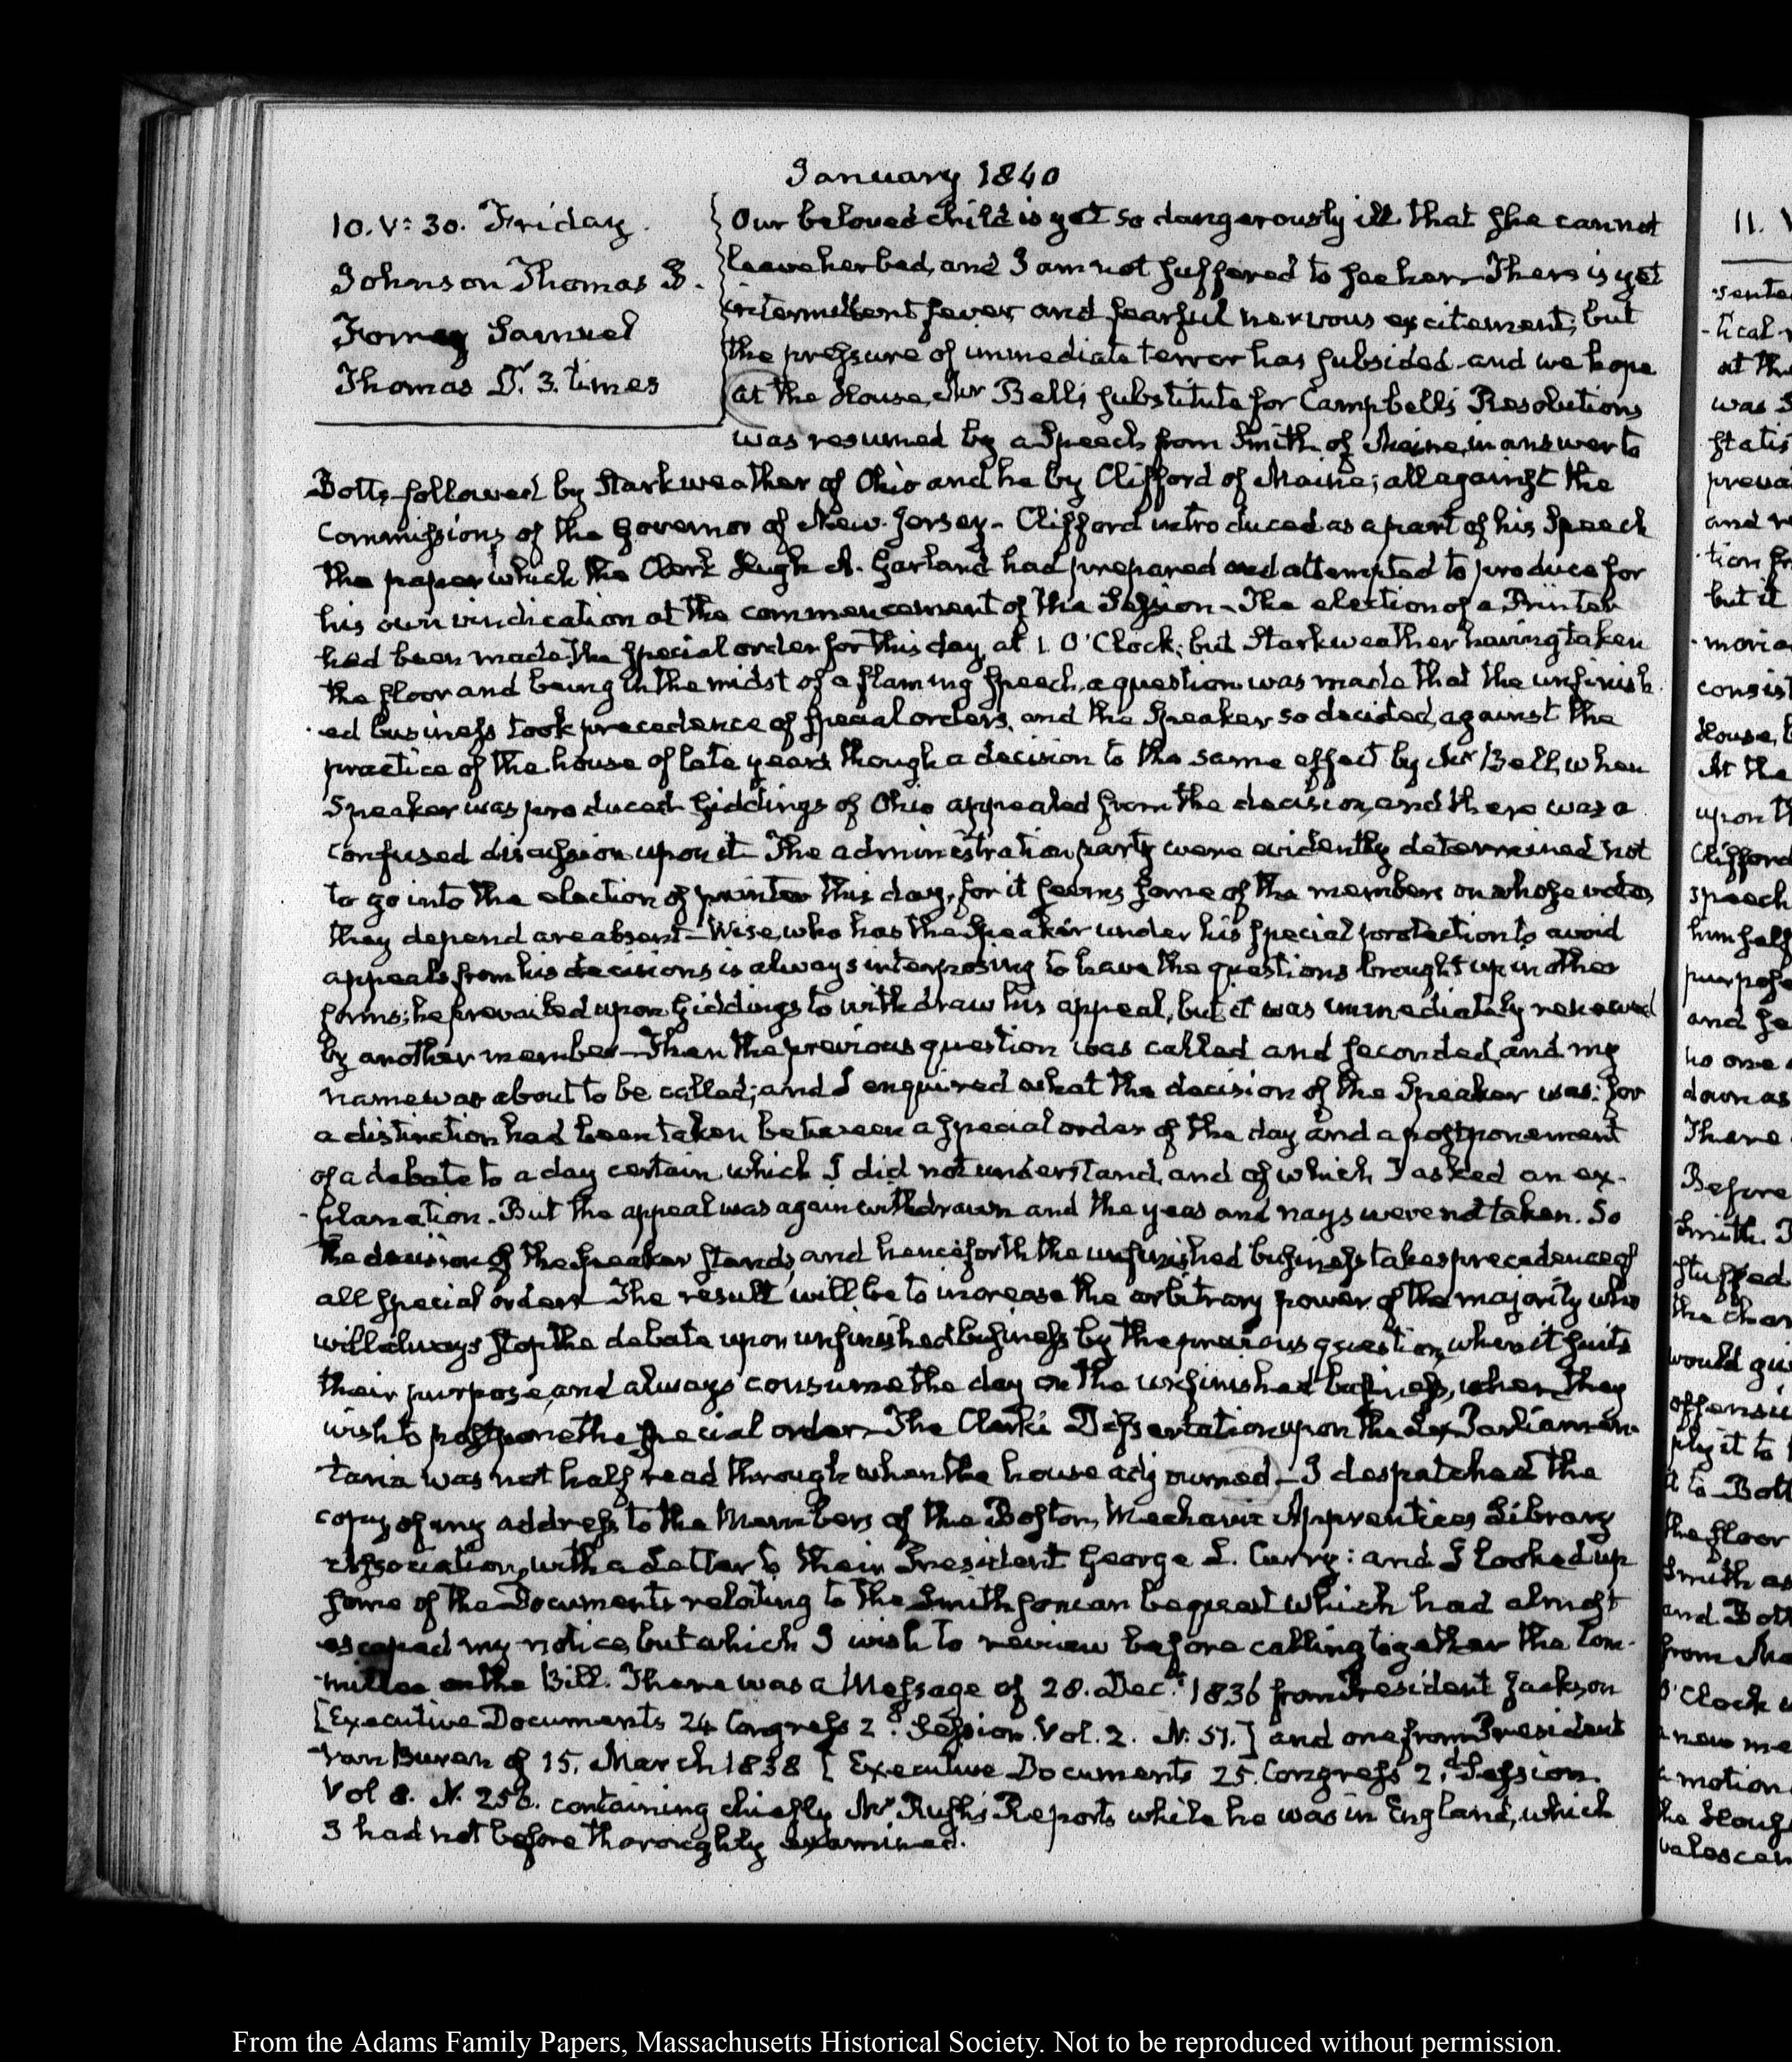 January 1840
10. V: 30. Friday.
Johnson Thomas B.
Forrey Samuel
Thomas Dr. 3. times
Our beloved child is yet so dangerously ill that she cannot
leave her bed, and I am not suffered to see her. There is yet
intermittent fever and fearful nervous excitement, but
the pressure of immediate terror has subsided and we hope
at the House, Mr Bell's substitute for Campbell's Resolutions
was resumed by a Speech from Smith of Maine, in answer to
Botts, followed by Starkweather of Ohio and he by Clifford of Maine; all against the
Commissions of the Governor of New-Jersey - Clifford introduced as a part of his Speech
the paper which the Clerk Hugh A. Garland had prepared and attempted to produce for
his own vindication at the commencement of the Session - The election of a Printer
had been made the special order for this day, at 1 O'Clock; but Starkweather having taken
the floor and being in the midst of a flaming speech, a question was made that the unfinish
-ed business took precedence of special orders, and the Speaker so decided, against the
practice of the house of late years though a decision to the same effect by Mr Bell, when
Speaker was produced. Giddings of Ohio appealed from the decision, and there was a
confused discussion upon it - The administration party were evidently determined not
to go into the election of printer this day, for it seems some of the members on whose votes
they depend are absent - Wise, who has the Speaker under his special protection to avoid
appeals from his decisions is always interposing to have the questions brought up in other
forms; he prevailed upon Giddings to withdraw his appeal, but it was immediately renewed
by another member - Then the previous question was called and seconded, and my
name was about to be called; and I enquired what the decision of the Speaker was: for
a distinction had been taken between a special order of the day and a postponement
of a debate to a day certain which I did not understand, and of which I asked an ex-
-planation. But the appeal was again withdrawn and the yeas and nays were not taken. So
the decision of the Speaker stands, and henceforth the unfinished business takes precedence of
all special orders - The result will be to increase the arbitrary power of the majority who
will always stop the debate upon unfinished business by the previous question, when it suits
their purpose, and always consume the day on the unfinished business, when they
wish to postpone the special order - The Clerk's Dissertation upon the Lex Parliamen-
taria was not half read through when the house adjourned - I despatched the
copy of my address to the Members of the Boston Mechanic Apprentices Library
Association, with a Letter to their President George L. Curry: and I looked up
some of the Documents relating to the Smithsonian bequest which had almost
escaped my notice, but which I wish to review before calling together the Com-
-mittee on the Bill. There was a Message of 28. Decr. 1836 from President Jackson
[Executive Documents 24 Congress 2d. Session. Vol. 2. N. 51.] and one from President
Van Buren of 15. March 1838 [Executive Documents 25. Congress 2d. Session
Vol 8. N. 256. containing chiefly Mr Rush's Reports while he was in England, which
I had not before thoroughly examined.
11.
sente
-tical
at the
was
statis
preva
and
-tion fr
but it
-moria
consist
House,
At the
upon th
Clifford
speech
himself
purpose
and se
no one
down as
There
Before
Smith.
stuffed
the char
would
offensi
ply it to
it to Bott
the floor
Smith as
and Bott
from Ma
O'Clock
a new me
a motion
the Hous
valescen
From the Adams Family Papers, Massachusetts Historical Society. Not to be reproduced without permission.